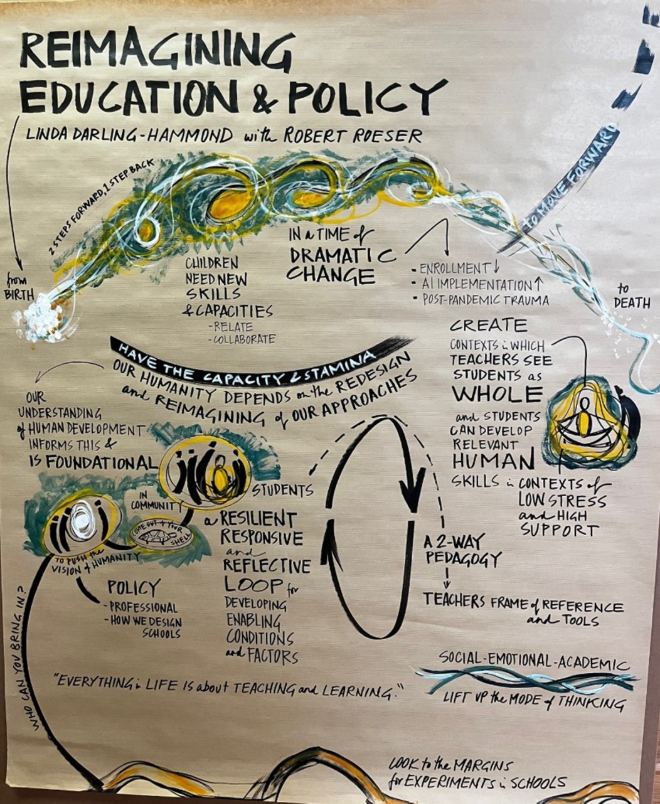 REIMAGINING
EDUCATION & POLICY
LINDA DARLING-HAMMOND with ROBERT ROESER
2 STEPS FORWARD, 1 STEP BACK
to MOVE FORWARD
from
BIRTH
to
DEATH
CHILDREN
NEED NEW
SKILLS
& CAPACITIES
- RELATE
- COLLABORATE
IN a TIME of
DRAMATIC
CHANGE
- ENROLLMENT ↓
- AI IMPLEMENTATION ↑
- POST-PANDEMIC TRAUMA
HAVE THE CAPACITY & STAMINA
OUR HUMANITY DEPENDS on the REDESIGN
and REIMAGINING of OUR APPROACHES
CREATE
CONTEXTS in WHICH
TEACHERS SEE
STUDENTS as
WHOLE
and STUDENTS
CAN DEVELOP
RELEVANT
HUMAN
SKILLS in CONTEXTS of
LOW STRESS
and HIGH
SUPPORT
OUR
UNDERSTANDING
of HUMAN DEVELOPMENT
INFORMS THIS &
IS FOUNDATIONAL
IN
COMMUNITY
COME OUT of YOUR
SHELL
TO PUSH the
VISION of HUMANITY
POLICY
- PROFESSIONAL
- HOW WE DESIGN
SCHOOLS
WHO CAN YOU BRING IN?
STUDENTS
a RESILIENT
RESPONSIVE
and
REFLECTIVE
LOOP for
DEVELOPING
ENABLING
CONDITIONS
and FACTORS
A 2-WAY
PEDAGOGY
TEACHERS FRAME of REFERENCE
and TOOLS
SOCIAL-EMOTIONAL-ACADEMIC
LIFT UP the MODE of THINKING
"EVERYTHING in LIFE IS about TEACHING and LEARNING."
LOOK to the MARGINS
for EXPERIMENTS in SCHOOLS